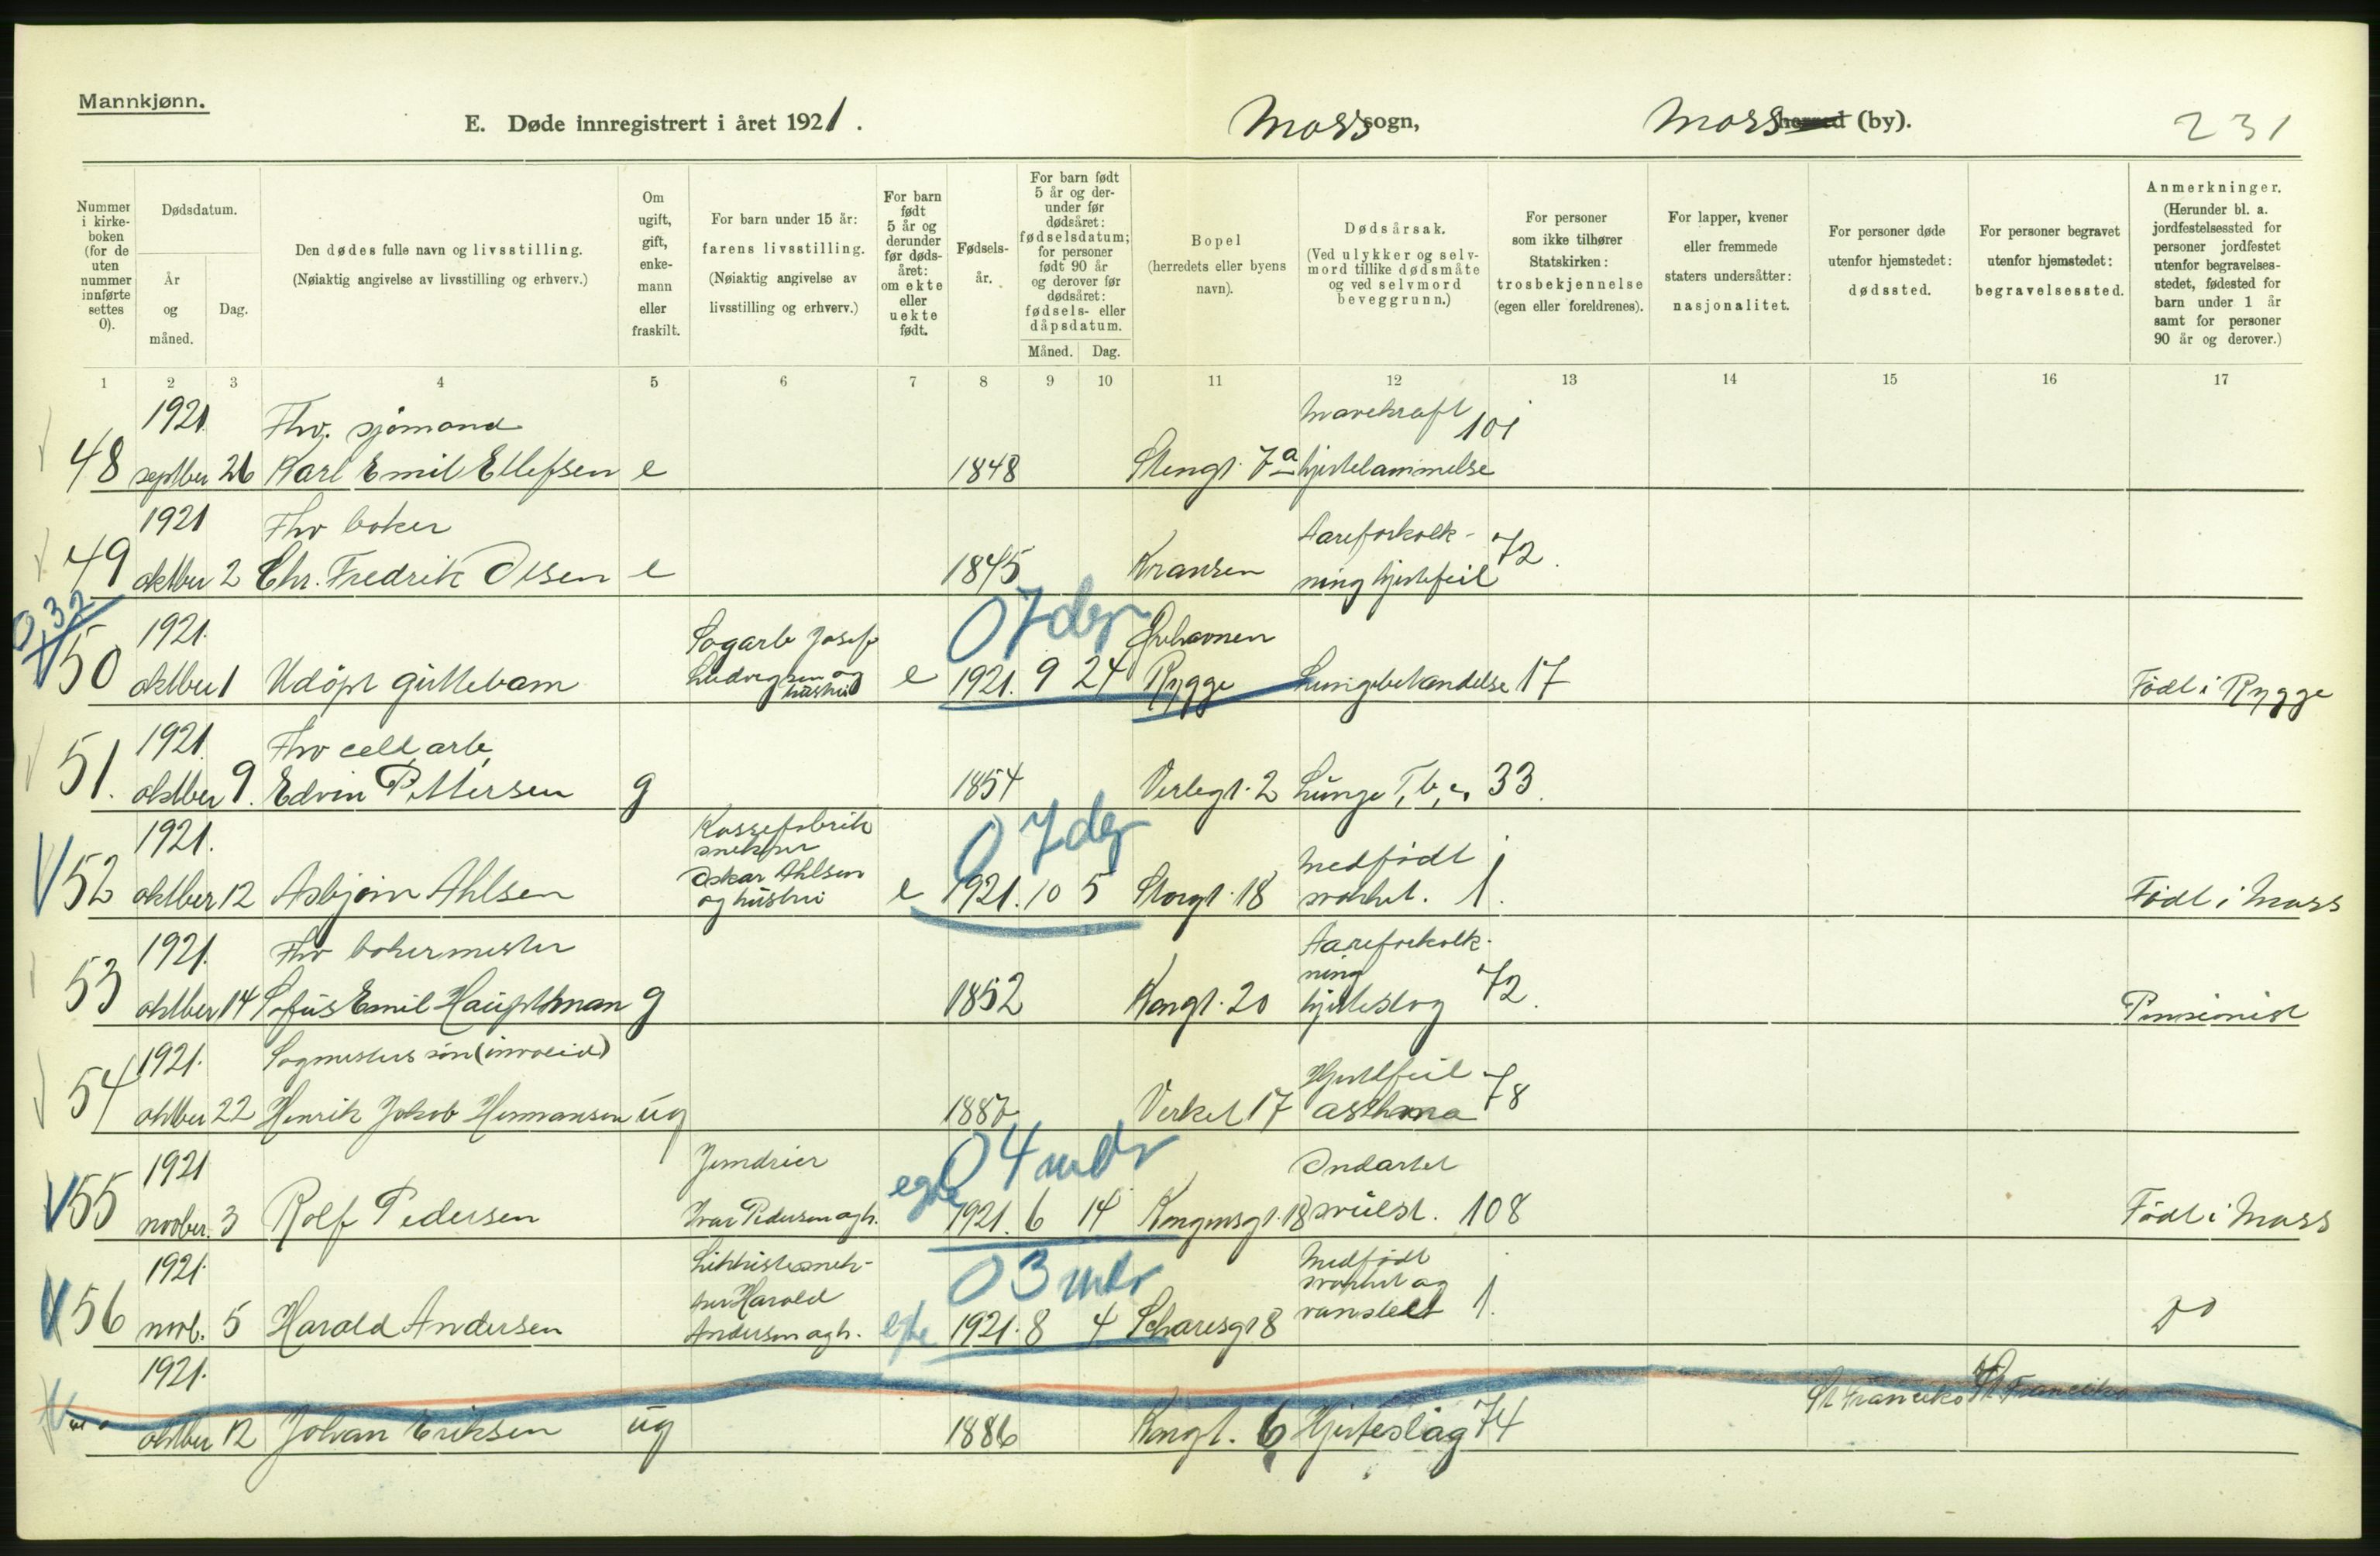 Mannkjønn.
E. Døde innregistrert i året 1921. Moss sogn, Moss herred (by). 231
Nummer i kirkeboken (for de uten nummer innførte settes 0).
Dødsdatum.
År og måned.
Dag.
Den dødes fulle navn og livsstilling.
(Nøiaktig angivelse av livsstilling og erhverv.)
Om ugift, gift, enkemann eller fraskilt.
For barn under 15 år: farens livsstilling.
(Nøiaktig angivelse av livsstilling og erhverv.)
For barn født 5 år og derunder før dødsåret: om ekte eller uekte født.
Fødselsår.
For barn født 5 år og derunder før dødsåret: fødselsdatum; for personer født 90 år og derover før dødsåret: fødsels- eller dåpsdatum.
Måned. Dag.
Bopel
(herredets eller byens navn).
Dødsårsak.
(Ved ulykker og selvmord tillike dødsmåte og ved selvmord beveggrunn.)
For personer som ikke tilhører Statskirken: trosbekjennelse (egen eller foreldrenes).
For lapper, kvener eller fremmede staters undersåtter: nasjonalitet.
For personer døde utenfor hjemstedet: dødssted.
For personer begravet utenfor hjemstedet: begravelsessted.
Anmerkninger.
(Herunder bl. a. jordfestelsessted for personer jordfestet utenfor begravelsesstedet, fødested for barn under 1 år samt for personer 90 år og derover.)
1 2 3 4 5 6 7 8 9 10 11 12 13 14 15 16 17
1921 Fhv. sjømand Mavekræft 101
48 septber 26 Karl Emil Ellefsen e 1848 Stengt. 7a hjertelammelse
1921 Fhv baker Aareforkalk-
49 oktber 2 Chr. Fredrik Olsen e 1845 Kransen ning hjertefeil 72.
032
1921. Sagarb Josef 0 7 dgr
50 oktber 1 Udøpt guttebarn Ludvigsen og hustru e 1921. 9 24 Rygge Lungebetændelse 17 Født i Rygge
1921 Fhv cell. arb.
51. oktber 9. Edvin Pettersen g 1854 Verlegt. 2 Lunge T.b.c. 33.
1921. Kassefabrik snekker 0 7 dgr Medfødt
52 oktber 12 Asbjørn Ahlsen Oskar Ahlsen og hustru e 1921. 10 5 Storgt. 18 svakhet. 1. Født i Moss
1921. Fhv bakermester Aareforkalk-
ning
53 oktber 14 Sofus Emil Haupthman g 1852 Kongt. 20 hjerteslag 72. Pensionist
1921. Sagmesters søn (invalid) Hjertefeil
54 oktber 22 Henrik Jakob Hermansen ug Verket 17 asthma 78
1921 0 4 mdr Ondartet
55 novber. 3 Rolf Pedersen Ivar Pedersen og h. egte 1921. 6 14 Kongensgt. 18 svulst. 108 Født i Moss
1921. Likkistesnek- 0 3 mdr Medfødt
ker Harald svakhet og
56 novb. 5 Harald Andersen Andersen og h. egte 1921. 8 4 8 vanstelt 1. do
1921.
St Francisko St Francisko
oktber 12 Johan Eriksen ug 1886 Kongt. 6 Hjerteslag 74